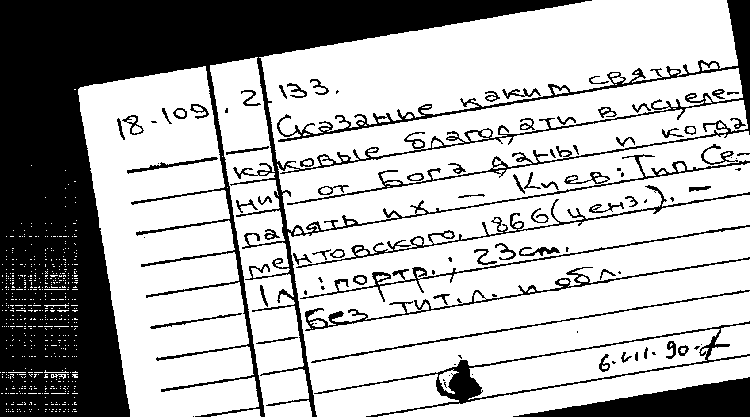 18-109.2.133.
Сказание каким святым
каковые благодати в исцеле-
нии от Бога даны и когда
память их. — Киев: Тип. Се-
ментовского, 1866 (ценз.). —
1 л.: портр.; 23 см.
Без тит. л. и обл.